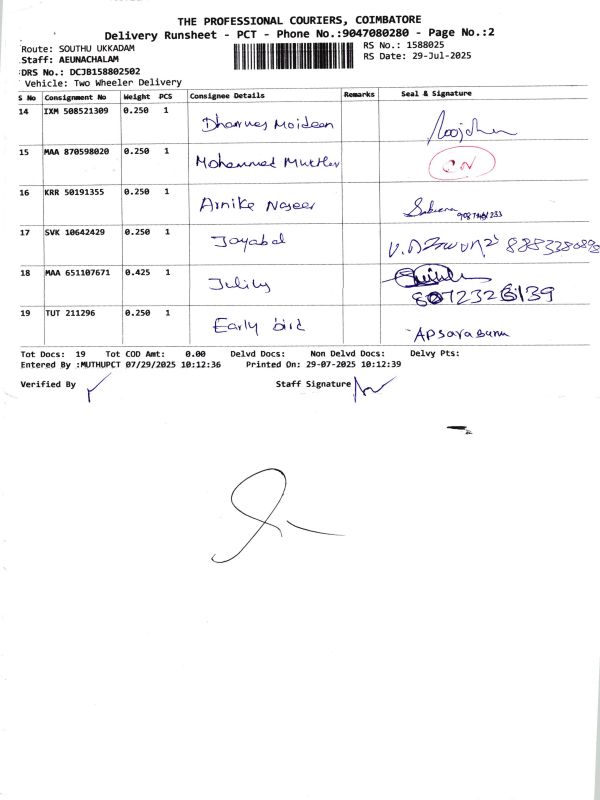 THE PROFESSIONAL COURIERS, COIMBATORE
Delivery Runsheet - PCT - Phone No.:9047080280 - Page No.:2
Route: SOUTHU UKKADAM
RS No.: 1588025
Staff: AEUNACHALAM
RS Date: 29-Jul-2025
DRS No.: DCJB158802502
Vehicle: Two Wheeler Delivery
S No Consignment No Weight PCS Consignee Details Remarks Seal & Signature
14 IXM 508521309 0.250 1 Dharves Moideen
15 MAA 870598020 0.250 1 Mohammed
16 KRR 50191355 0.250 1 Arnike Naseer
17 SVK 10642429 0.250 1 Jayabal
18 MAA 651107671 0.425 1
19 TUT 211296 0.250 1 Early bird Apsara Banu
Tot Docs: 19 Tot COD Amt: 0.00 Delvd Docs: Non Delvd Docs: Delvy Pts:
Entered By :MUTHUPCT 07/29/2025 10:12:36 Printed On: 29-07-2025 10:12:39
Verified By Staff Signature